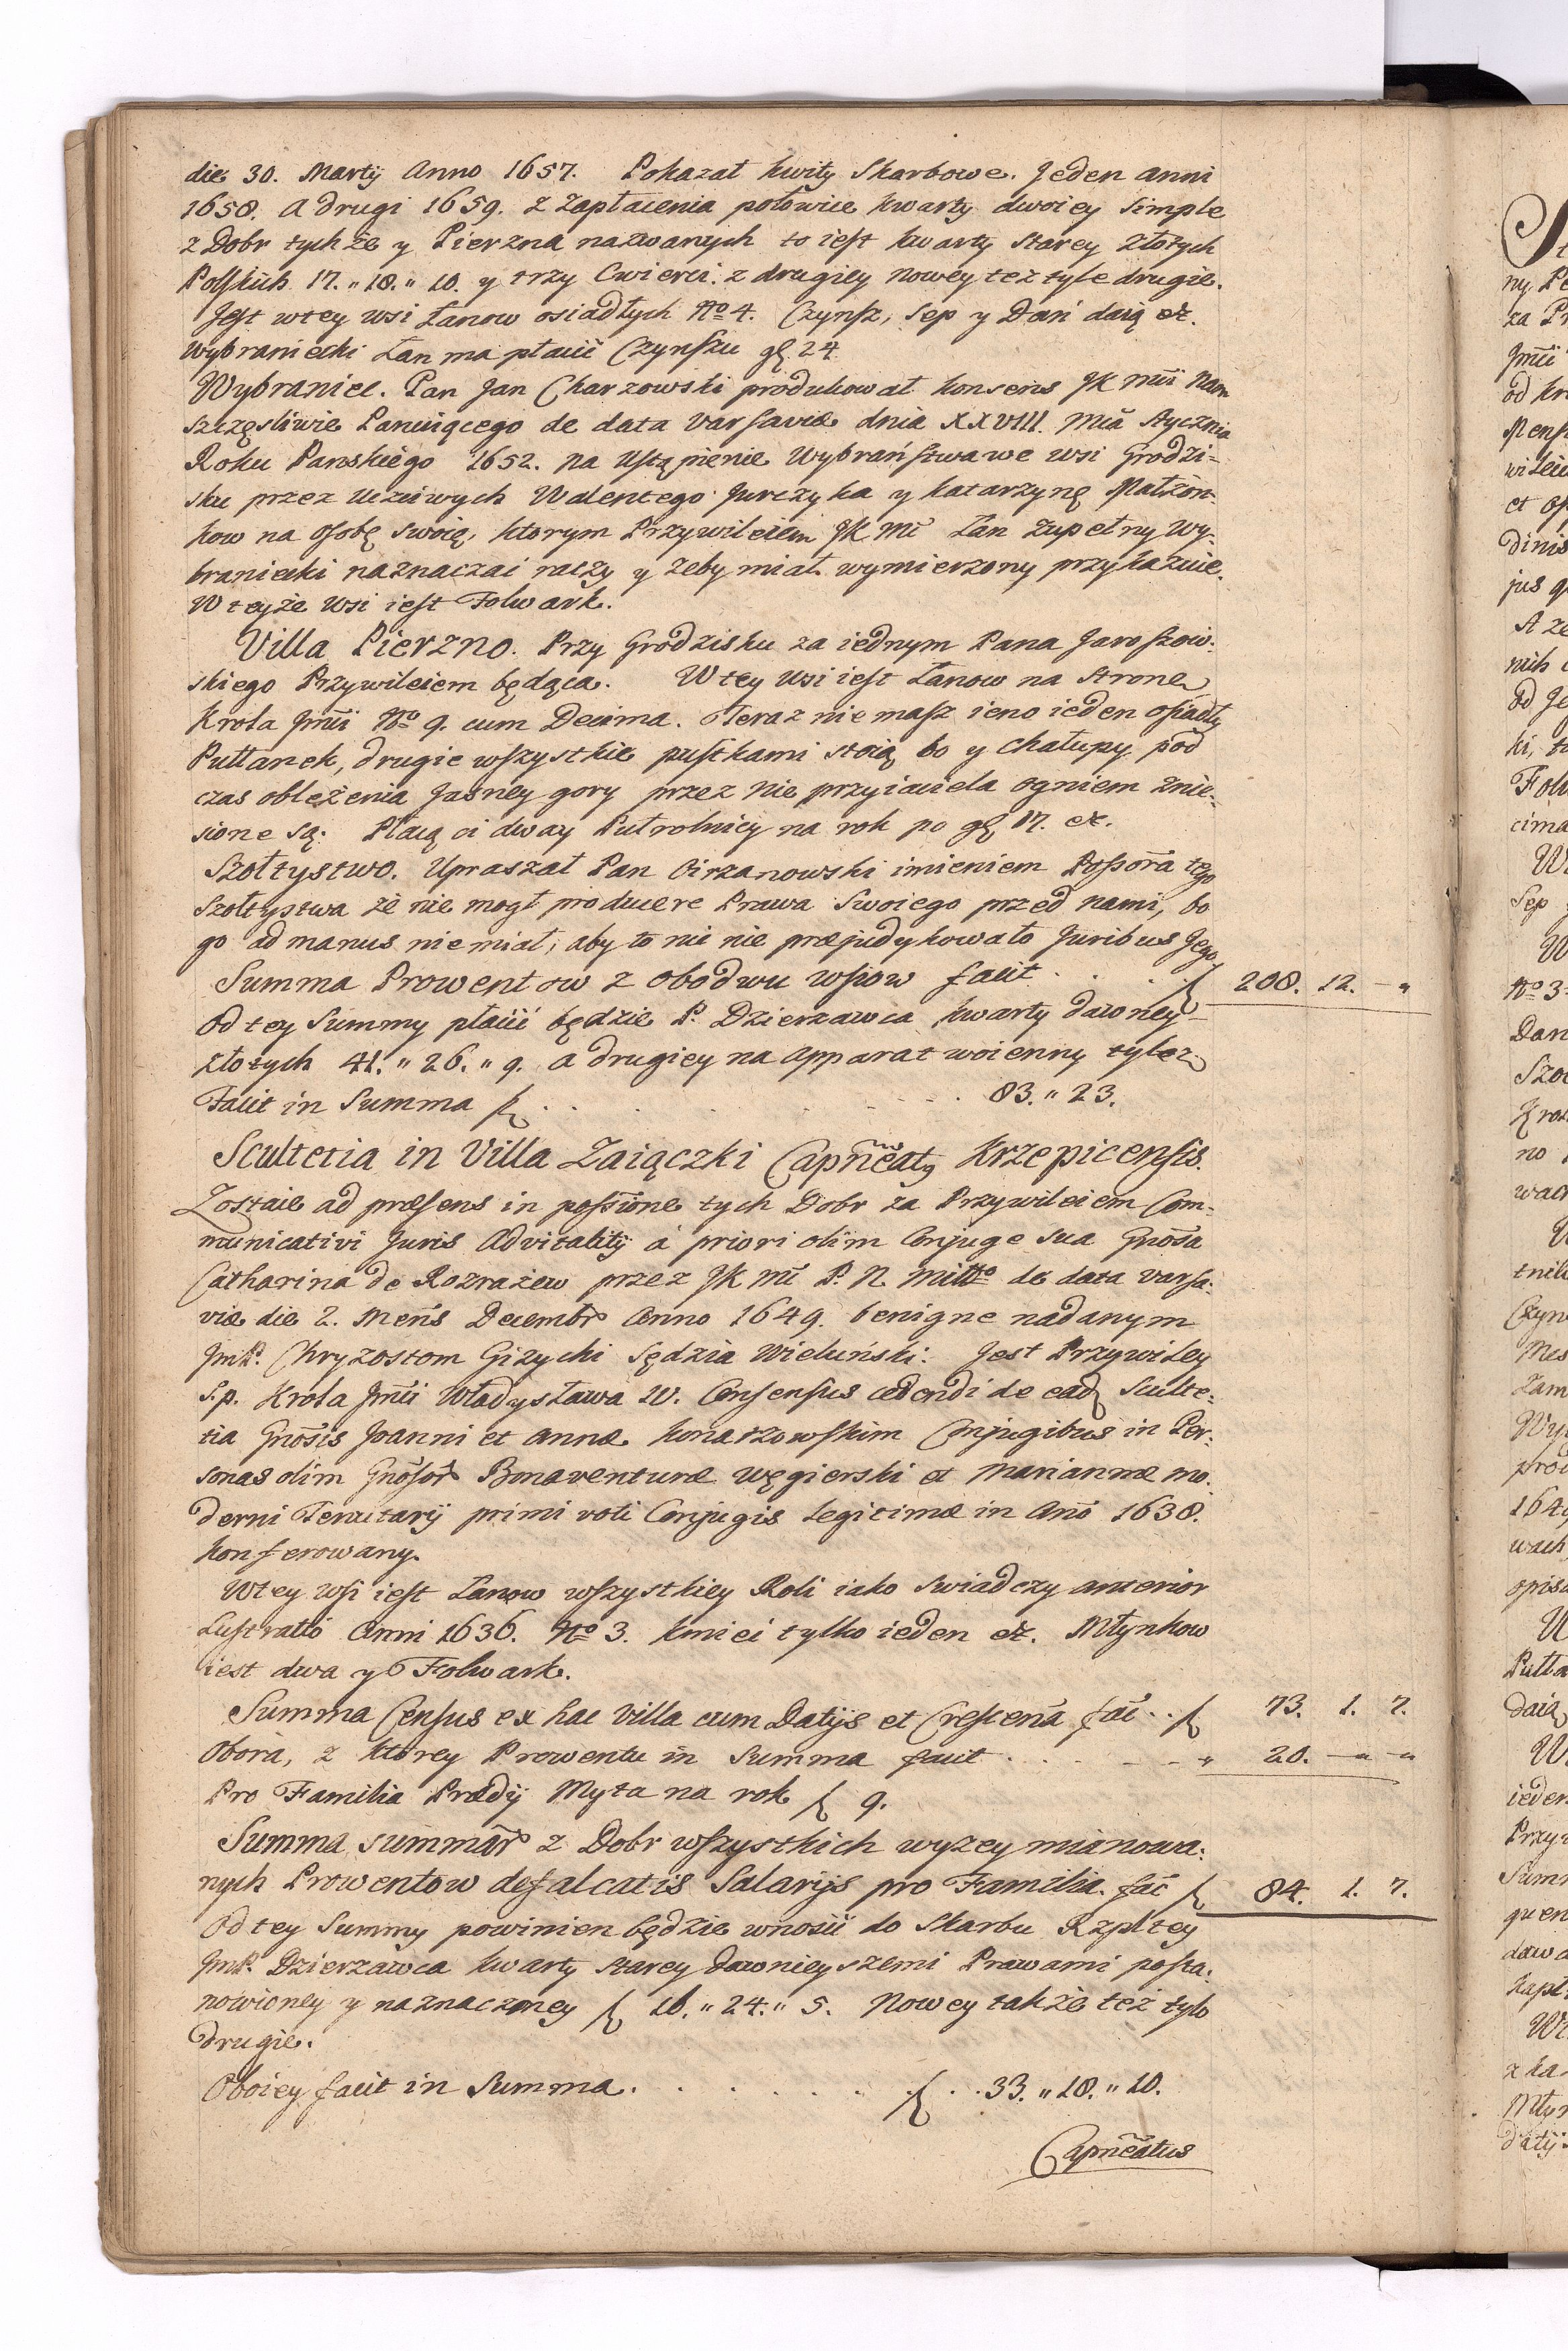 die 30. Martij Anno 1657. Pokazał kwity Skarbowe. Jeden anni
1658. A drugi 1659. z Zapłacenia połowice kwarty dwoiey Simple
z Dobr tychże y Pierzna nazwanych to iest kwarty Starey Złotych
Polskich 17. " 18. " 10. y trzy Cwierci. z drugiey Nowey też tyle drugie.
Jest w tey wsi Łanow osiadłych No 4. Czynsz, Sep y Dań daią etc.
Wybraniecki Łan ma płacić Czynszu gl 24
Wybraniec. Pan Jan Charzowski produkował konsens JK Mći Nam
szczęsliwie Panuiącego de data Varsaviæ dnia XXVIII. Mcā Stycznia
Roku Panskiego 1652. na Ustąpienie Wybraństwa we wsi Grodzi-
sku przez Uczciwych Walentego Jurczyka y Katarzynę Małżon-
kow na Osobę swoią, ktorym Przywileiem JK Mć Łan Zupełny Wy-
braniecki naznaczai raczy y żeby miał wymierzony przykazuie.
W teyże Wsi iest Folwark.
Villa Pierzno. Przy Grodzisku za iednym Pana Jaroszow-
skiego Przywileiem będąca. W tey Wsi iest Łanow na Strone
Krola Jmći No 9. cum Decima. Teraz nie masz ieno ieden osiadły
Pułłanek, drugie wszystkie pustkami stoią bo y chałupy pod
czas oblężenia Jasney gory przez Nieprzyiaciela ogniem znie-
sione są. Płacą ci dway Pułrolnicy na rok po gl 17. etc.
Szołtystwo. Upraszał Pan Cirzanowski imieniem Possora tego
Szołtystwa że nie mogł producere Prawa Swoiego przed nami, bo
go ad manus nie miał, aby to nic nie præjudykowało Juribus Jego
Summa Prowentow z obodwu wsiow facit . . . f 208. 12. — "
Od tey Summy płacić będzie P. Dzierzawca kwarty dawney
Złotych 41. " 26. " 9. a drugiey na apparat woienny tyleż
Facit in Summa f . . . 83. " 23.
Scultetia in Villa Zaiączki Capn̄eatq Krzepicensis.
Zostaie ad præsens in possione tych Dobr za Przywileiem Com-
municativi Juris Advitalitij à priori olim Conjuge sua Gnosa
Catharina de Rozrażew przez JK Mć P. N. Miłłgo de data Varsa-
viæ die 2. Mens Decembr Anno 1649. benigne nadanym
JmP. Chryzostom Giżycki Sędzia Wieluński. Jest Przywiley
S.p. Krola Jmći Władysława IV. Consensus cedendi de eadq Sculte-
tia Gnosis Joanni et Annæ Konarzowskim Conjugibus in Per-
sonas olim Gnosor Bonaventuræ Węgierski et Mariannæ mo-
derni Tenutarij primi voti Conjugis Legitimæ in Ano 1638.
konferowany.
W tey wsi iest Łanow wszystkiey Roli iako Swiadczy anterior
Lustratio Anni 1636. No 3. Kmieci tylko ieden etc. Młynkow
iest dwa y Folwark.
Summa Census ex hac Villa cum Datijs et Crescena fac . . f 73. 1. 7.
Obora, z ktorey Prowentu in Summa facit . . . " 20. — " — "
Pro Familia Prædij Myta na rok f 9.
Summa Summar z Dobr wszystkich wyzey mianowa-
nych Prowentow defalcatis Salarijs pro Familia fac f 84. 1. 7.
Od tey Summy powinien będzie wnosić do Skarbu Rzpltey
JmP. Dzierzawca kwarty starey dawnieyszemi Prawami posta-
nowioney y naznaczoney f 16. " 24. " 5. Nowey także też tylo
drugie.
Oboiey facit in Summa . . . f . . 33. " 18. " 10.
Capn̄eatus